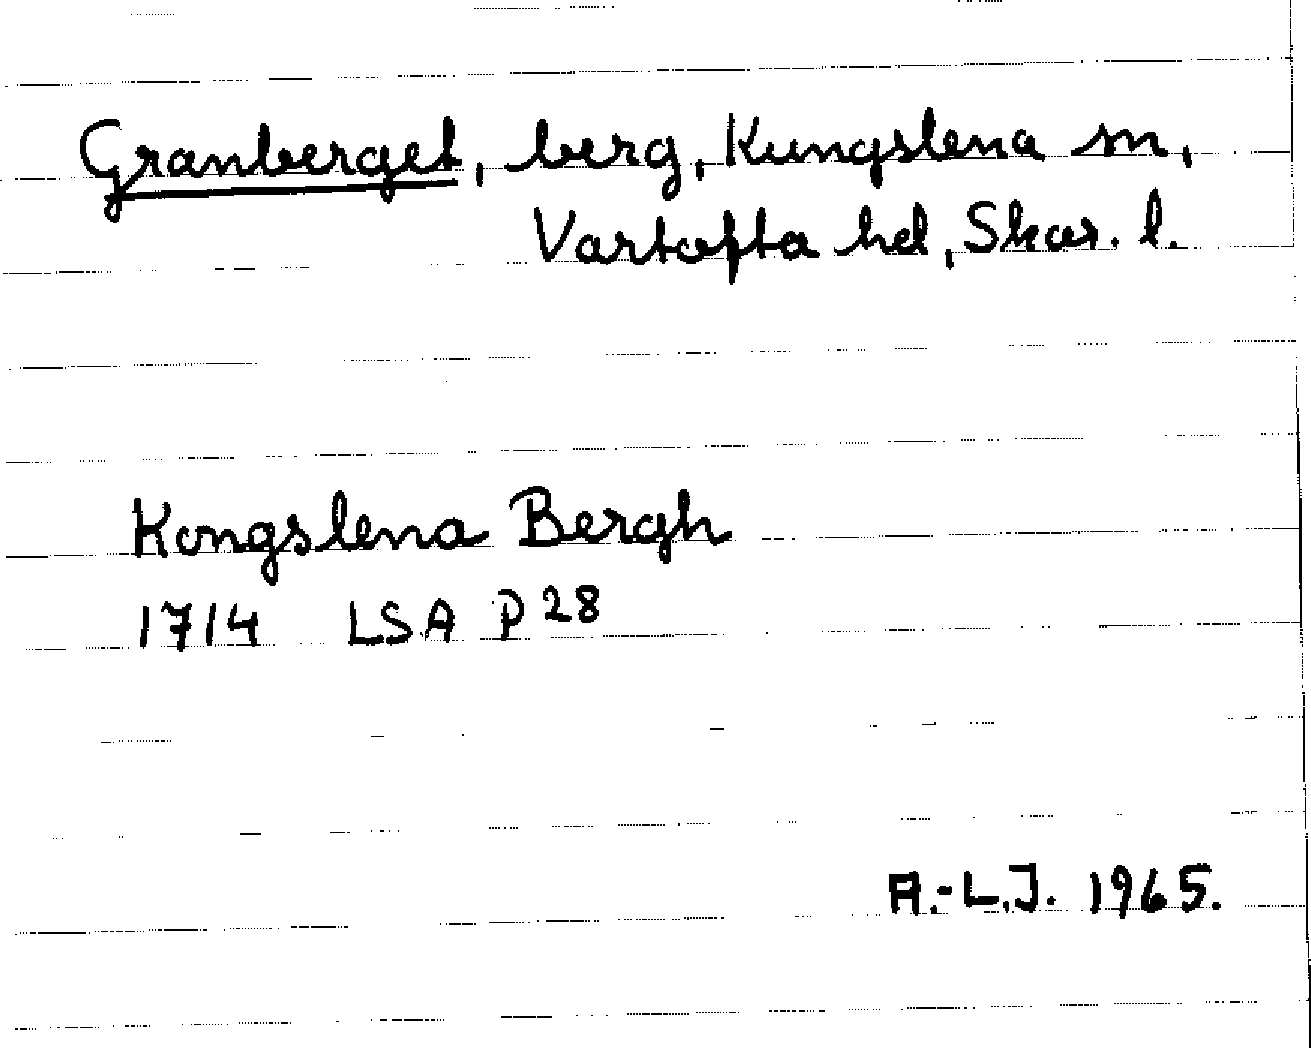 Granberget, berg, Kungslena sn,
Vartofta hd, Skar. l.
Kongslena Bergh
1714 LSA P 28
A.-L.J. 1965.